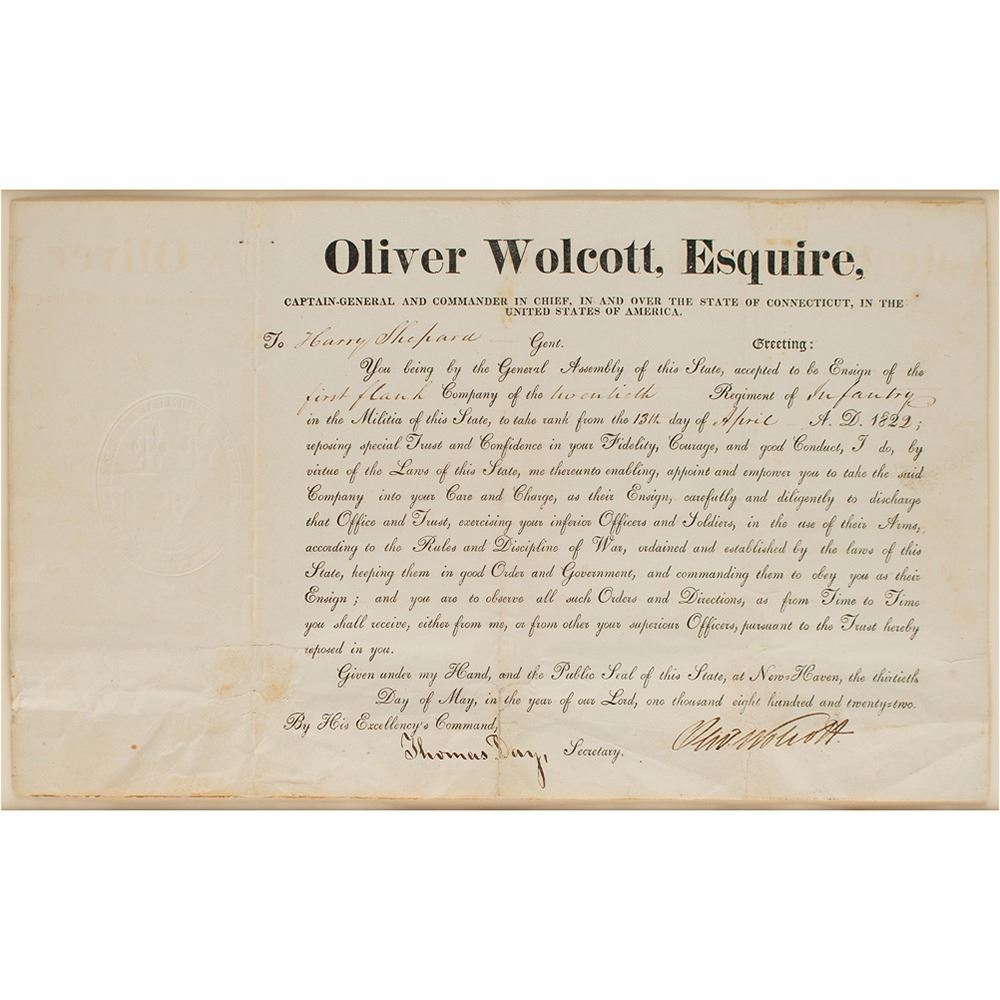 Oliver Wolcott, Esquire,
CAPTAIN-GENERAL AND COMMANDER IN CHIEF, IN AND OVER THE STATE OF CONNECTICUT, IN THE
UNITED STATES OF AMERICA.
To Harry Shepard — Gent. Greeting:
You being by the General Assembly of this State, accepted to be Ensign of the
first flank Company of the twentieth Regiment of Infantry
in the Militia of this State, to take rank from the 13th day of April — A. D. 1822;
reposing special Trust and Confidence in your Fidelity, Courage, and good Conduct, I do, by
virtue of the Laws of this State, me thereunto enabling, appoint and empower you to take the said
Company into your Care and Charge, as their Ensign, carefully and diligently to discharge
that Office and Trust, exercising your inferior Officers and Soldiers, in the use of their Arms,
according to the Rules and Discipline of War, ordained and established by the laws of this
State, keeping them in good Order and Government, and commanding them to obey you as their
Ensign; and you are to observe all such Orders and Directions, as from Time to Time
you shall receive, either from me, or from other your superiour Officers, pursuant to the Trust hereby
reposed in you.
Given under my Hand, and the Public Seal of this State, at New=Haven, the thirtieth
Day of May, in the year of our Lord, one thousand eight hundred and twenty=two.
By His Excellency's Command,
Thomas Day, Secretary. Oliv. Wolcott